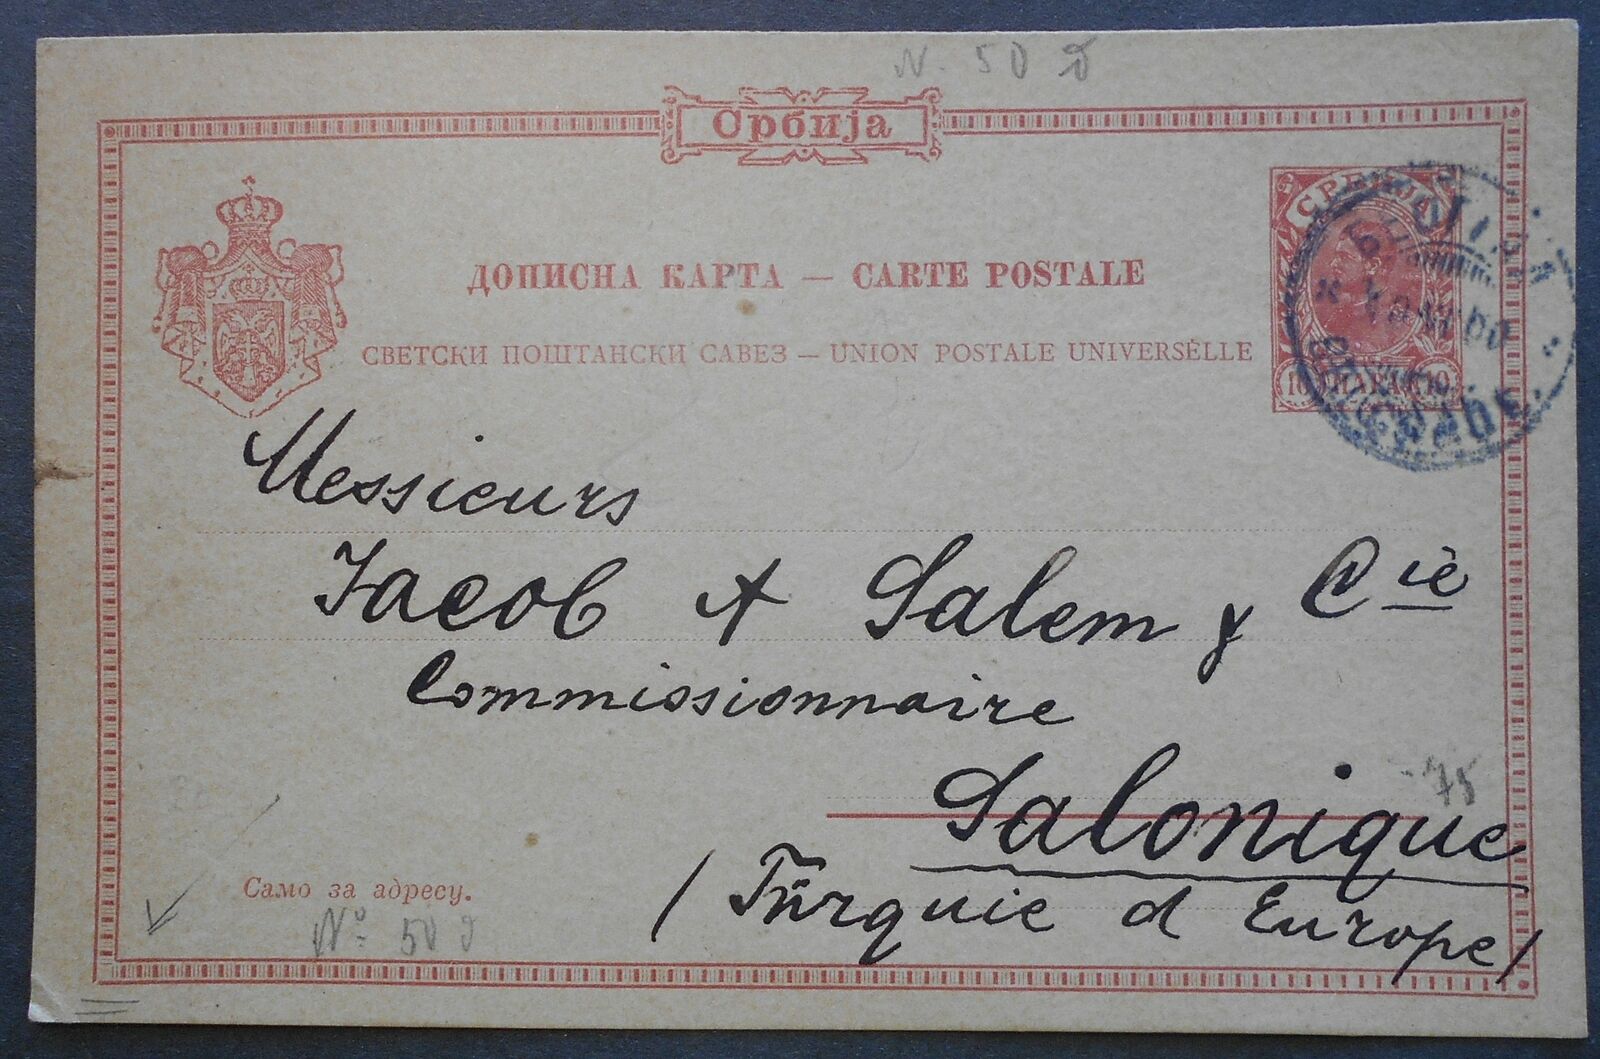 N. 50 d
Србија
СРБИЈА
ДОПИСНА КАРТА — CARTE POSTALE
СВЕТСКИ ПОШТАНСКИ САВЕЗ — UNION POSTALE UNIVERSELLE
10 ПАРА 10
Messieurs
Jacob A Salem & Cie
Commissionnaire
75
Salonique
Само за адресу.
(Türquie d Europe)
Nº 50 d